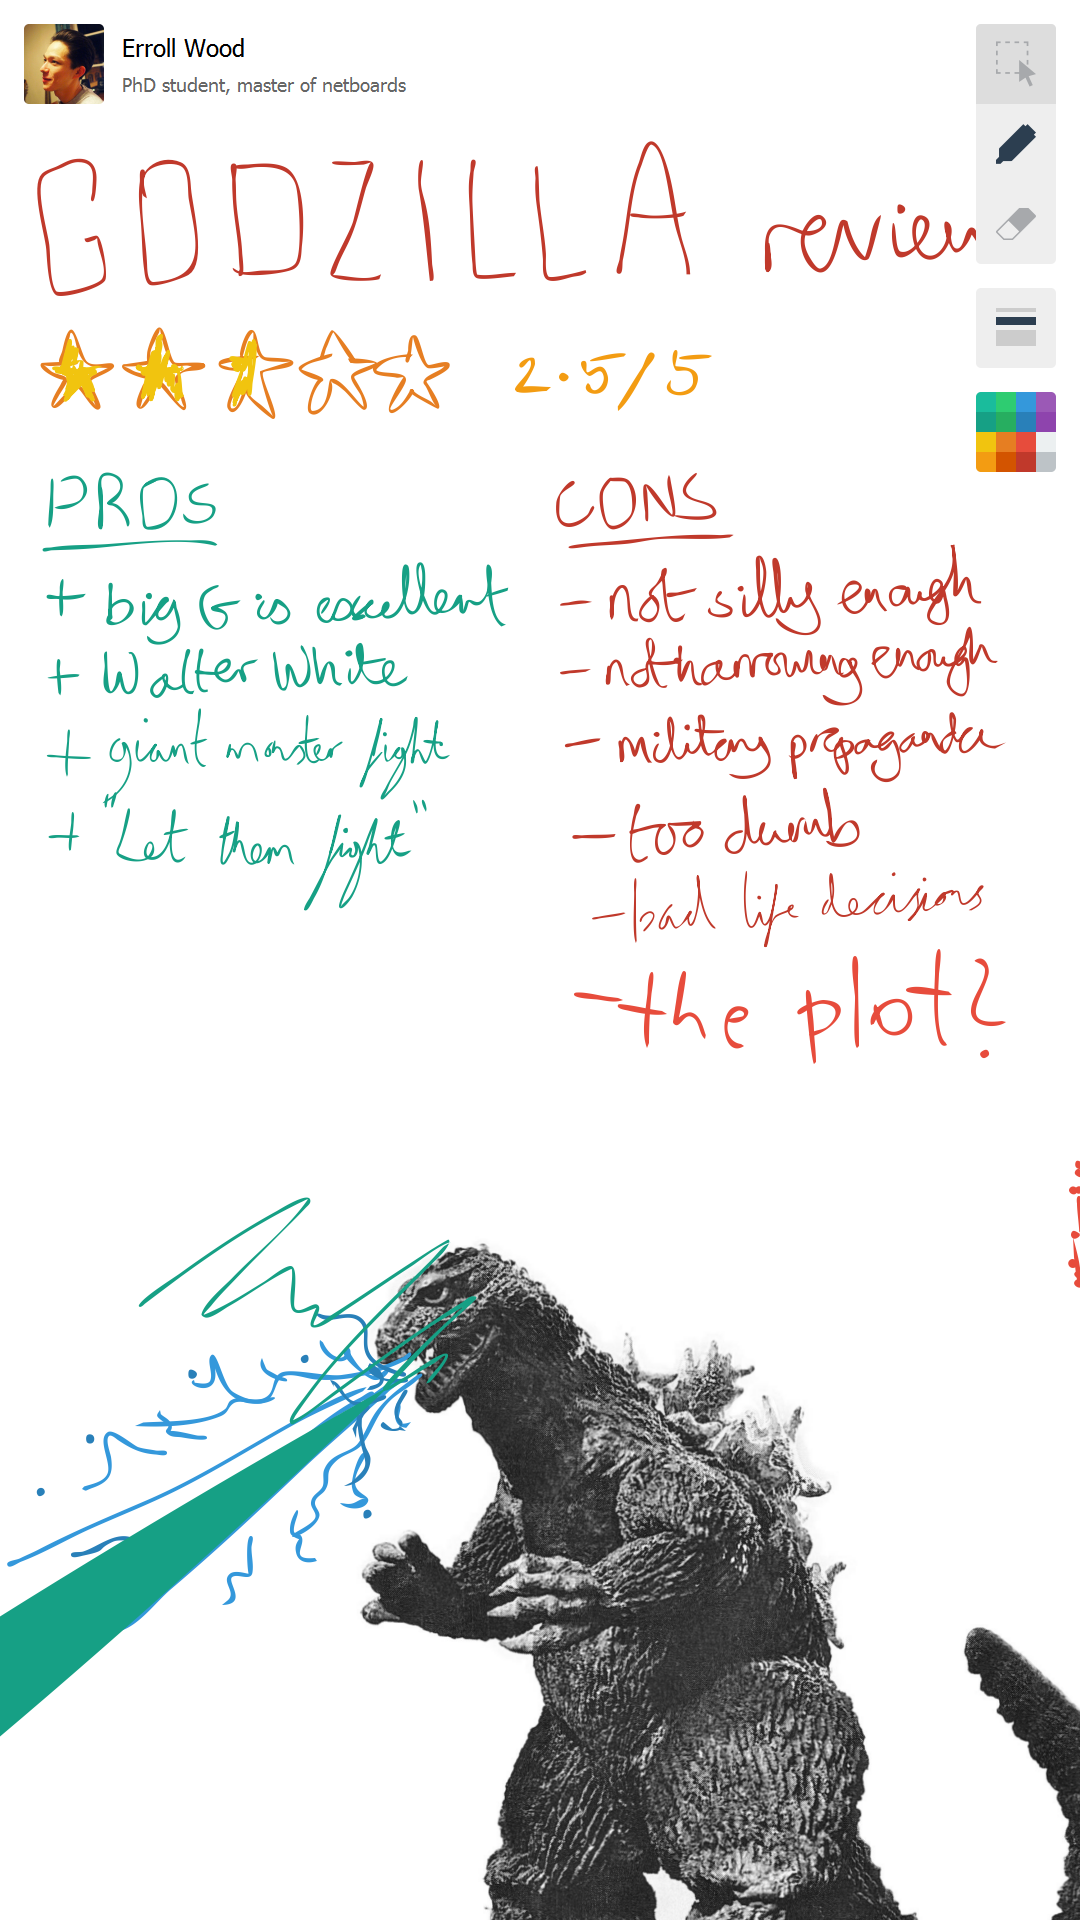 Erroll Wood
PhD student, master of netboards
GODZILLA review
2.5/5
PROS
+ big G is excellent
+ Walter White
+ giant monster fight
+ "Let them fight"
CONS
- not silly enough
- not harrowing enough
- military propaganda
- too dumb
- bad life decisions
- the plot?